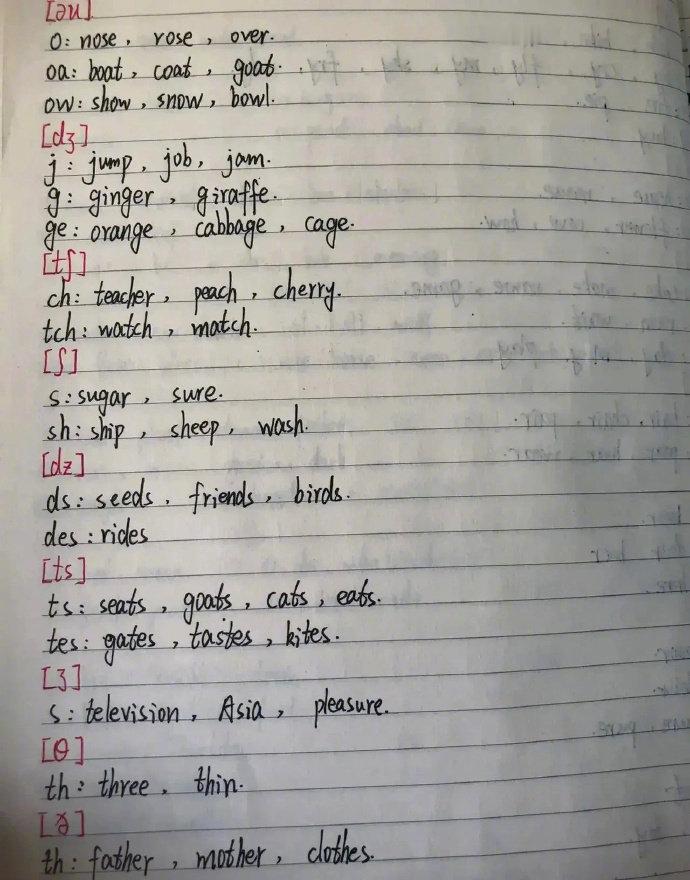 [əu]
o: nose, rose, over.
oa: boat, coat, goat.
ow: show, snow, bowl.
[dʒ]
j: jump, job, jam.
g: ginger, giraffe.
ge: orange, cabbage, cage.
[tʃ]
ch: teacher, peach, cherry.
tch: watch, match.
[ʃ]
s: sugar, sure.
sh: ship, sheep, wash.
[dz]
ds: seeds, friends, birds.
des: rides
[ts]
ts: seats, goats, cats, eats.
tes: gates, tastes, kites.
[ʒ]
s: television, Asia, pleasure.
[θ]
th: three, thin.
[ð]
th: father, mother, clothes.